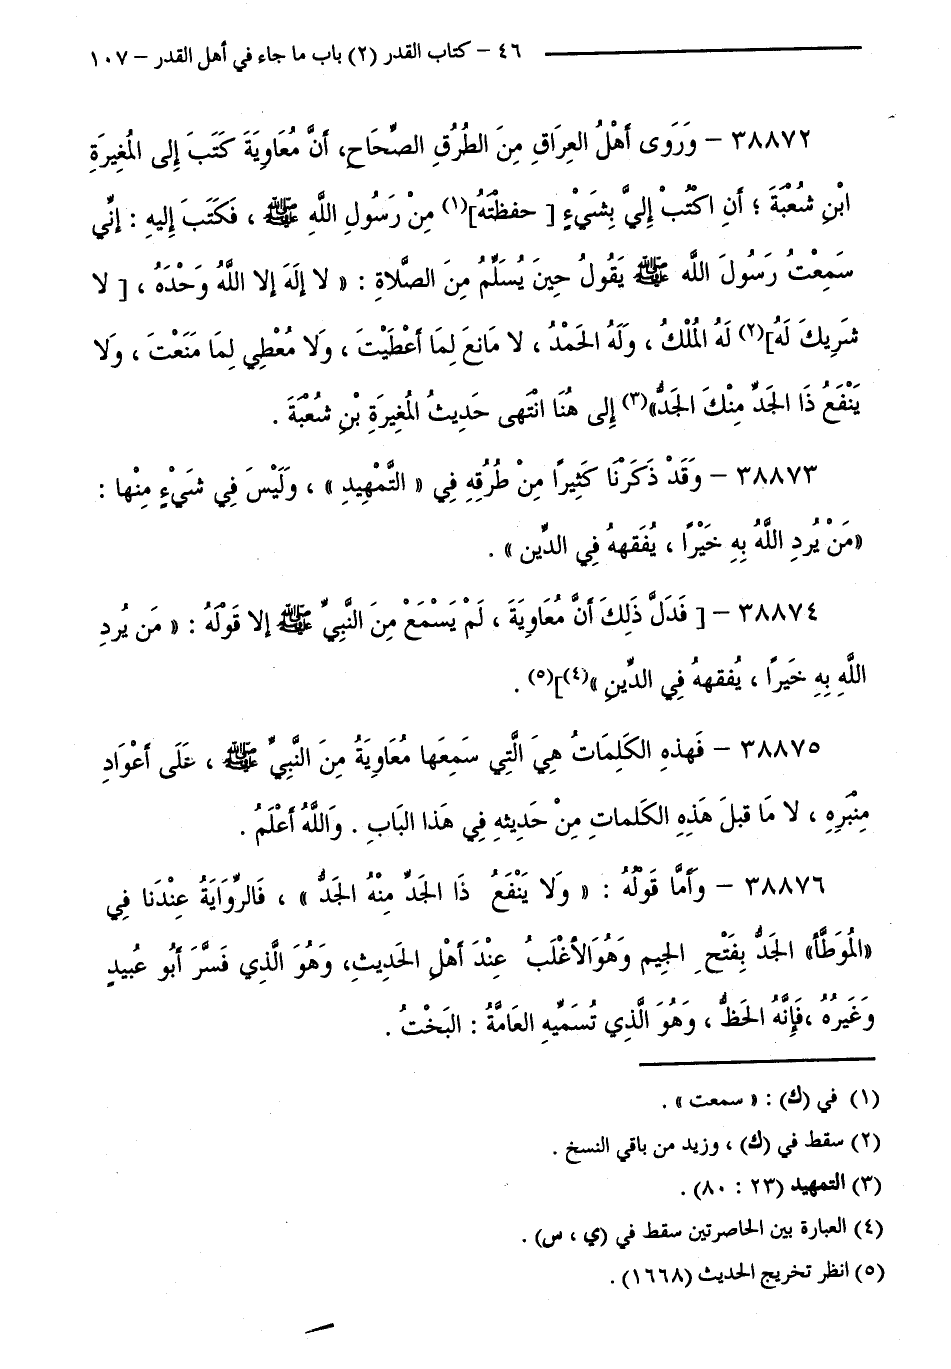 ٤٦ - كتاب القدر (٢) باب ما جاء في أهل القدر - ١٠٧
٣٨٨٧٢ - وَرَوَى أَهْلُ العِرَاقِ مِنَ الطُرُقِ الصِّحَاحِ، أَنَّ مُعَاوِيَةَ كَتَبَ إِلى المُغِيرَةِ
ابْنِ شُعْبَةَ ؛ أَنِ اكْتُبْ إِلَيَّ بِشَيْءٍ [ حفظْتَهُ](١) مِنْ رَسُولِ اللَّهِ ﷺ ، فَكَتَبَ إِليهِ : إِنِّي
سَمِعْتُ رَسُولَ اللَّه ﷺ يَقُولُ حِينَ يُسَلِّمُ مِنَ الصَّلاةِ : « لا إِلَهَ إلا اللَّهُ وَحْدَهُ ، [ لا
شَرِيكَ لَهُ](٢) لَهُ المُلْكُ ، وَلَهُ الحَمْدُ ، لا مَانعَ لِمَا أَعْطَيْتَ ، وَلا مُعْطِي لِمَا مَنَعْتَ ، وَلا
يَنْفَعُ ذَا الجَدِّ مِنْكَ الجَدُّ»(٣) إِلى هُنَا انْتَهى حَدِيثُ المُغِيرَةِ بْنِ شُعْبَةَ .
٣٨٨٧٣ - وَقَدْ ذَكَرْنَا كَثِيرًا مِنْ طُرُقِهِ فِي « التَّمْهِيدِ » ، وَلَيْسَ فِي شَيْءٍ مِنْها :
«مَنْ يُرِدِ اللَّهُ بِهِ خَيْرًا ، يُفَقههُ فِي الدِّين » .
٣٨٨٧٤ - [ فَدَلَّ ذَلِكَ أَنَّ مُعَاوِيَةَ ، لَمْ يَسْمَعْ مِنَ النَّبِيِّ ﷺ إلا قَوْلَهُ : « مَن يُرِد
اللَّهِ بِهِ خَيرًا ، يُفقههُ فِي الدِّينِ »(٤)](٥) .
٣٨٨٧٥ - فَهذهِ الكَلِمَاتُ هِيَ الَّتِي سَمِعَها مُعَاوِيَةُ مِنَ النَّبِيِّ ﷺ ، عَلَى أَعْوَادِ
مِنْبَرِهِ ، لا مَا قبلَ هَذِهِ الكَلماتِ مِنْ حَدِيثِهِ فِي هَذا البَابِ . وَاللَّهُ أَعْلَمُ .
٣٨٨٧٦ - وَأَمَّا قَوْلُهُ : « وَلا يَنْفَعُ ذَا الجَدِّ مِنْهُ الجَدُّ » ، فَالرِّوَايَةُ عِنْدَنا فِي
«المُوَطَّأ» الجَدُّ بِفَتْحِ الجِيم وَهُوَالأغْلَبُ عِنْدَ أَهْلِ الحَدِيثِ، وَهُوَ الَّذِي فَسَّرَ أَبُو عُبيدٍ
وَغَيرُهُ ،فَإِنَّهُ الحَظُّ ، وَهُوَ الَّذِي تُسَمِّيهِ العَامَّةُ : البَخْتُ .
(١) في (ك) : « سمعت » .
(٢) سقط في (ك) ، وزيد من باقي النسخ .
(٣) التمهيد (٢٣ : ٨٠) .
(٤) العبارة بين الحاصرتين سقط في (ي ، س) .
(٥) انظر تخريج الحديث (١٦٦٨) .